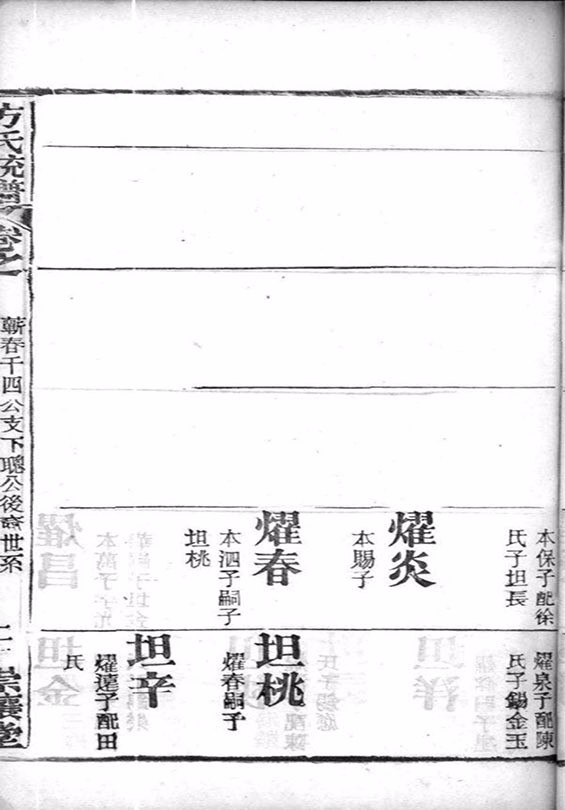 本保子配徐
氏子坦長
燿炎
本賜子
燿春
本泗子嗣子
坦桃
燿泉子配陳
氏子錫金玉
坦桃
燿春嗣子
坦辛
燿遠子配田
氏
方氏統譜
卷之
蘄春千四公支下聰公後裔世系
堂